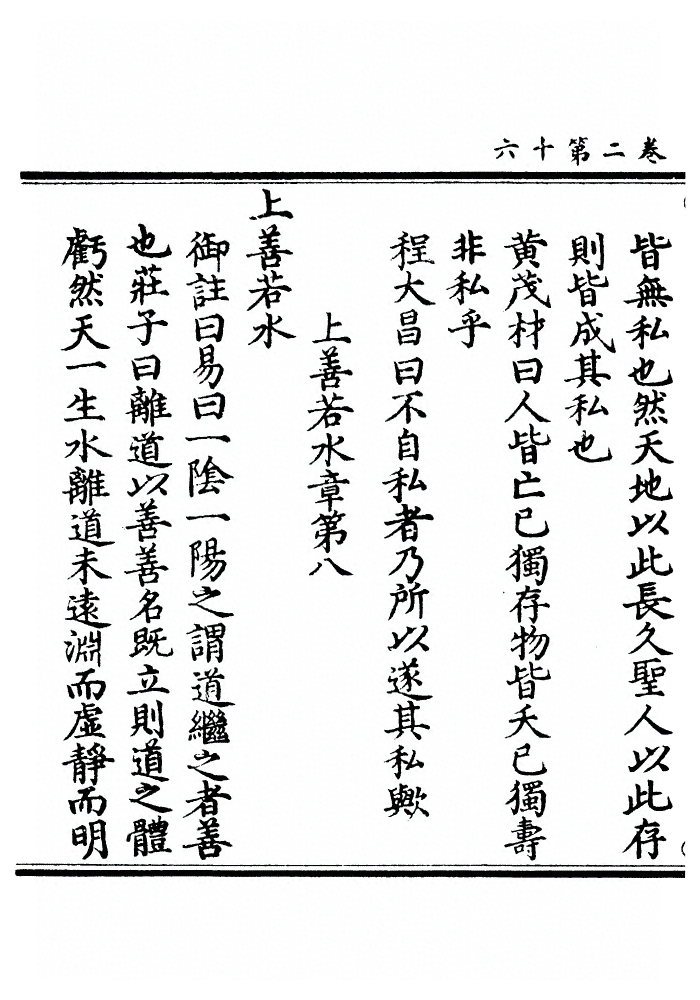 卷二第十六
皆無私也然天地以此長久聖人以此存
則皆成其私也
黃茂材曰人皆亡已獨存物皆夭已獨壽
非私乎
程大昌曰不自私者乃所以遂其私歟
上善若水章第八
上善若水
御註曰易曰一陰一陽之謂道繼之者善
也莊子曰離道以善善名既立則道之體
虧然天一生水離道未遠淵而虛靜而明